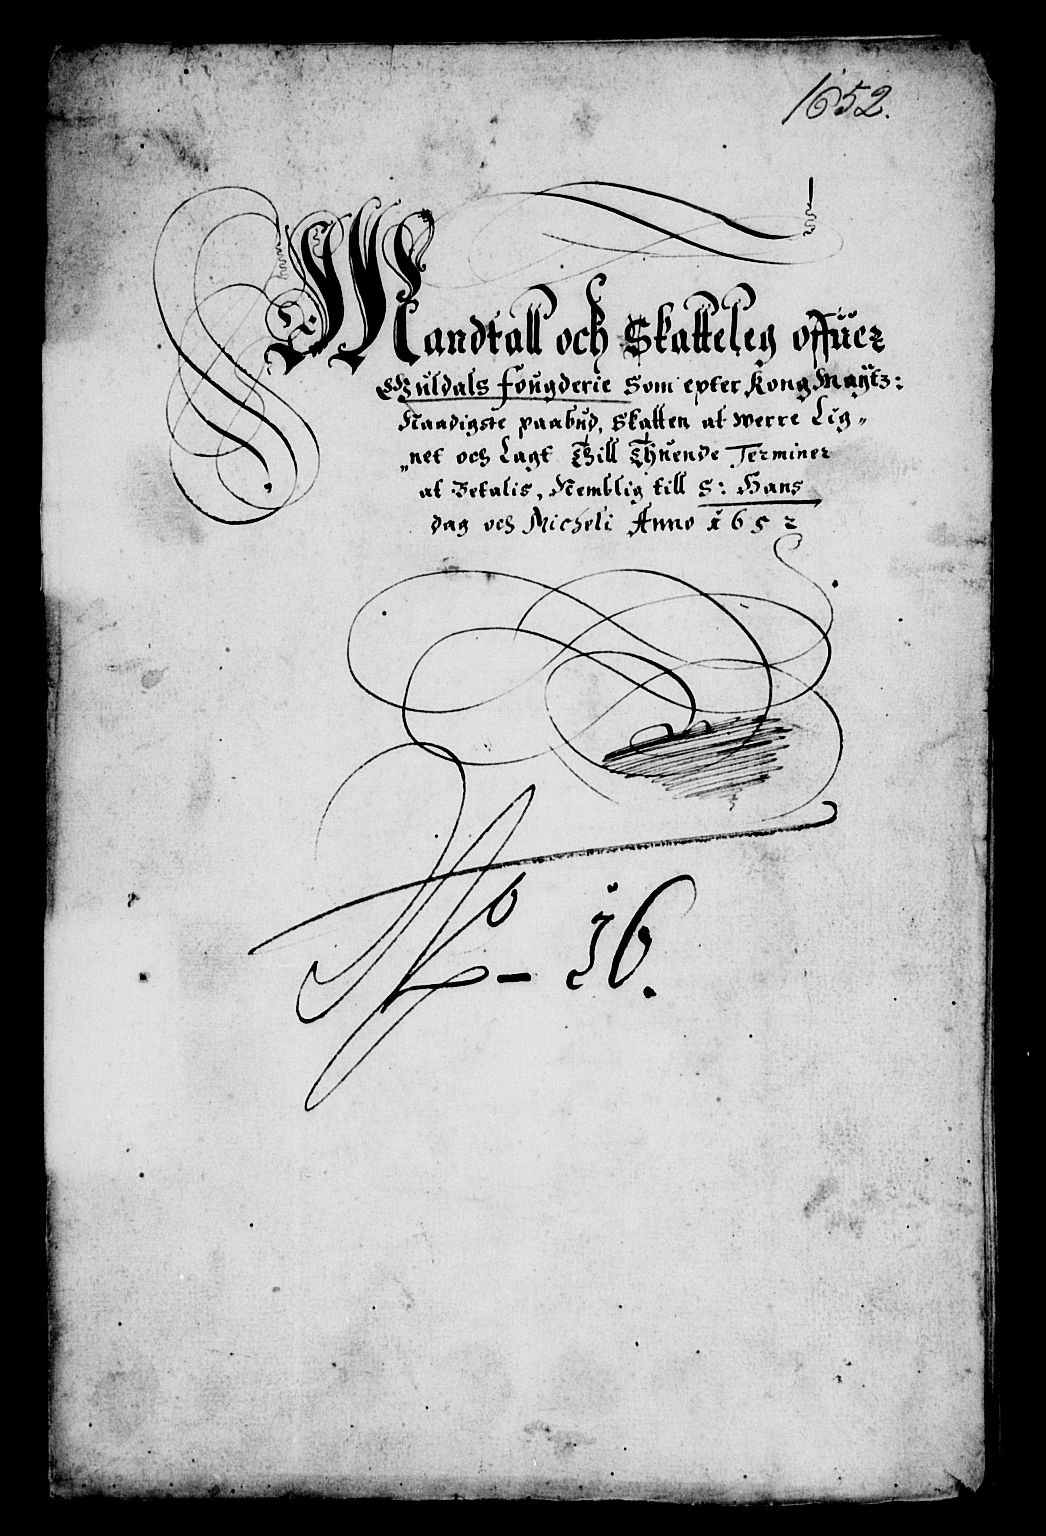 1652.
Mandtall och Skatteleg offüer
Guldals fougderie Som epter Kong Maÿtz:
Naadigste paabud, Skatten at werre Lig„
„net och Lagt Till Thuende Terminer
at Betalis, Nemblig till S: Hans
dag och Micheli Anno 1652
No – 16.